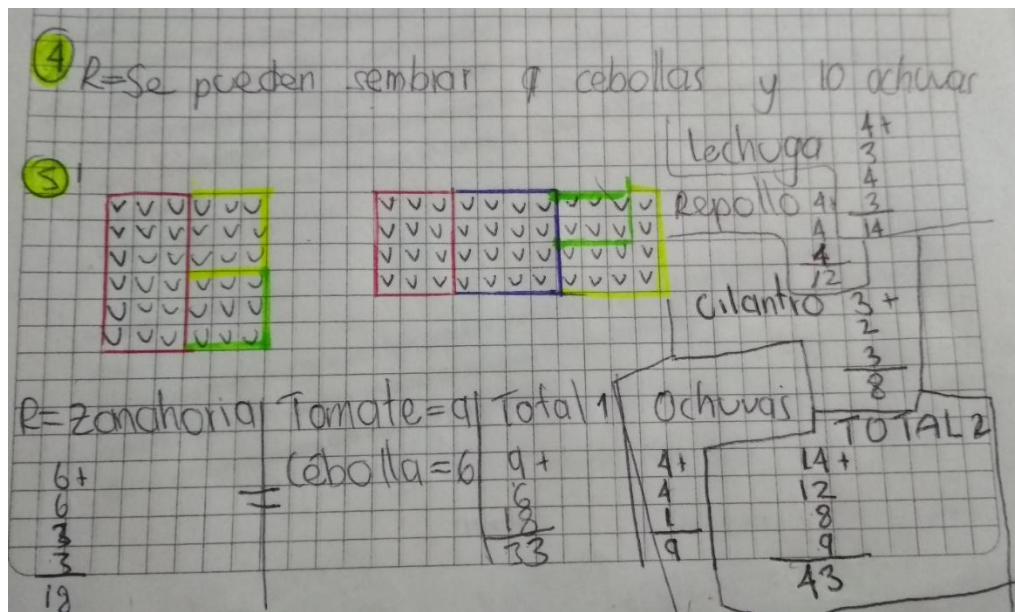 4 R=Se pueden sembrar 9 cebollas y 10 ochuvas
5
Lechuga 4+
3
4
3
14
Repollo 4+
4
4
12
Cilantro 3+
2
3
8
R=Zanahoria
6+
6
3
3
18
Tomate=9
Cebolla=6
=
Total 1
9+
6
18
33
Ochuvas
4+
4
1
9
TOTAL 2
14+
12
8
9
43